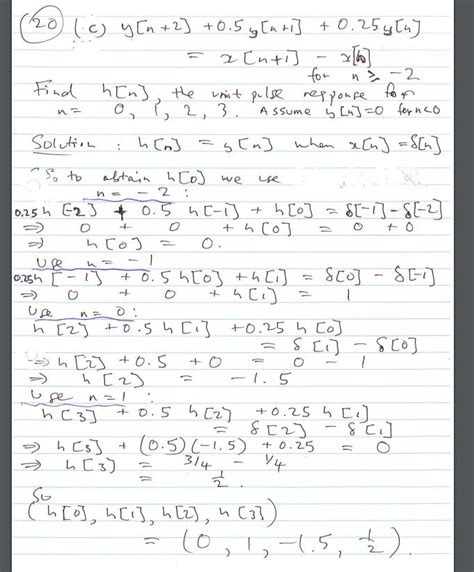 20 (c) y[n+2] + 0.5 y[n+1] + 0.25 y[n]
= x[n+1] - x[n]
for n ≥ -2
Find h[n], the unit pulse response for
n = 0, 1, 2, 3. Assume y[n]=0 for n<0
Solution : h[n] = y[n] when x[n] = δ[n]
So to obtain h[0] we use
n = -2 :
0.25 h[-2] + 0.5 h[-1] + h[0] = δ[-1] - δ[-2]
⇒ 0 + 0 + h[0] = 0 + 0
⇒ h[0] = 0.
Use n = -1
0.25h[-1] + 0.5 h[0] + h[1] = δ[0] - δ[-1]
⇒ 0 + 0 + h[1] = 1
Use n = 0 :
h[2] + 0.5 h[1] + 0.25 h[0]
= δ[1] - δ[0]
⇒ h[2] + 0.5 + 0 = 0 - 1
⇒ h[2] = -1.5
Use n = 1 :
h[3] + 0.5 h[2] + 0.25 h[1]
= δ[2] - δ[1]
⇒ h[3] + (0.5)(-1.5) + 0.25 = 0
⇒ h[3] = 3/4 - 1/4
= 1/2.
So
(h[0], h[1], h[2], h[3])
= (0, 1, -1.5, 1/2).